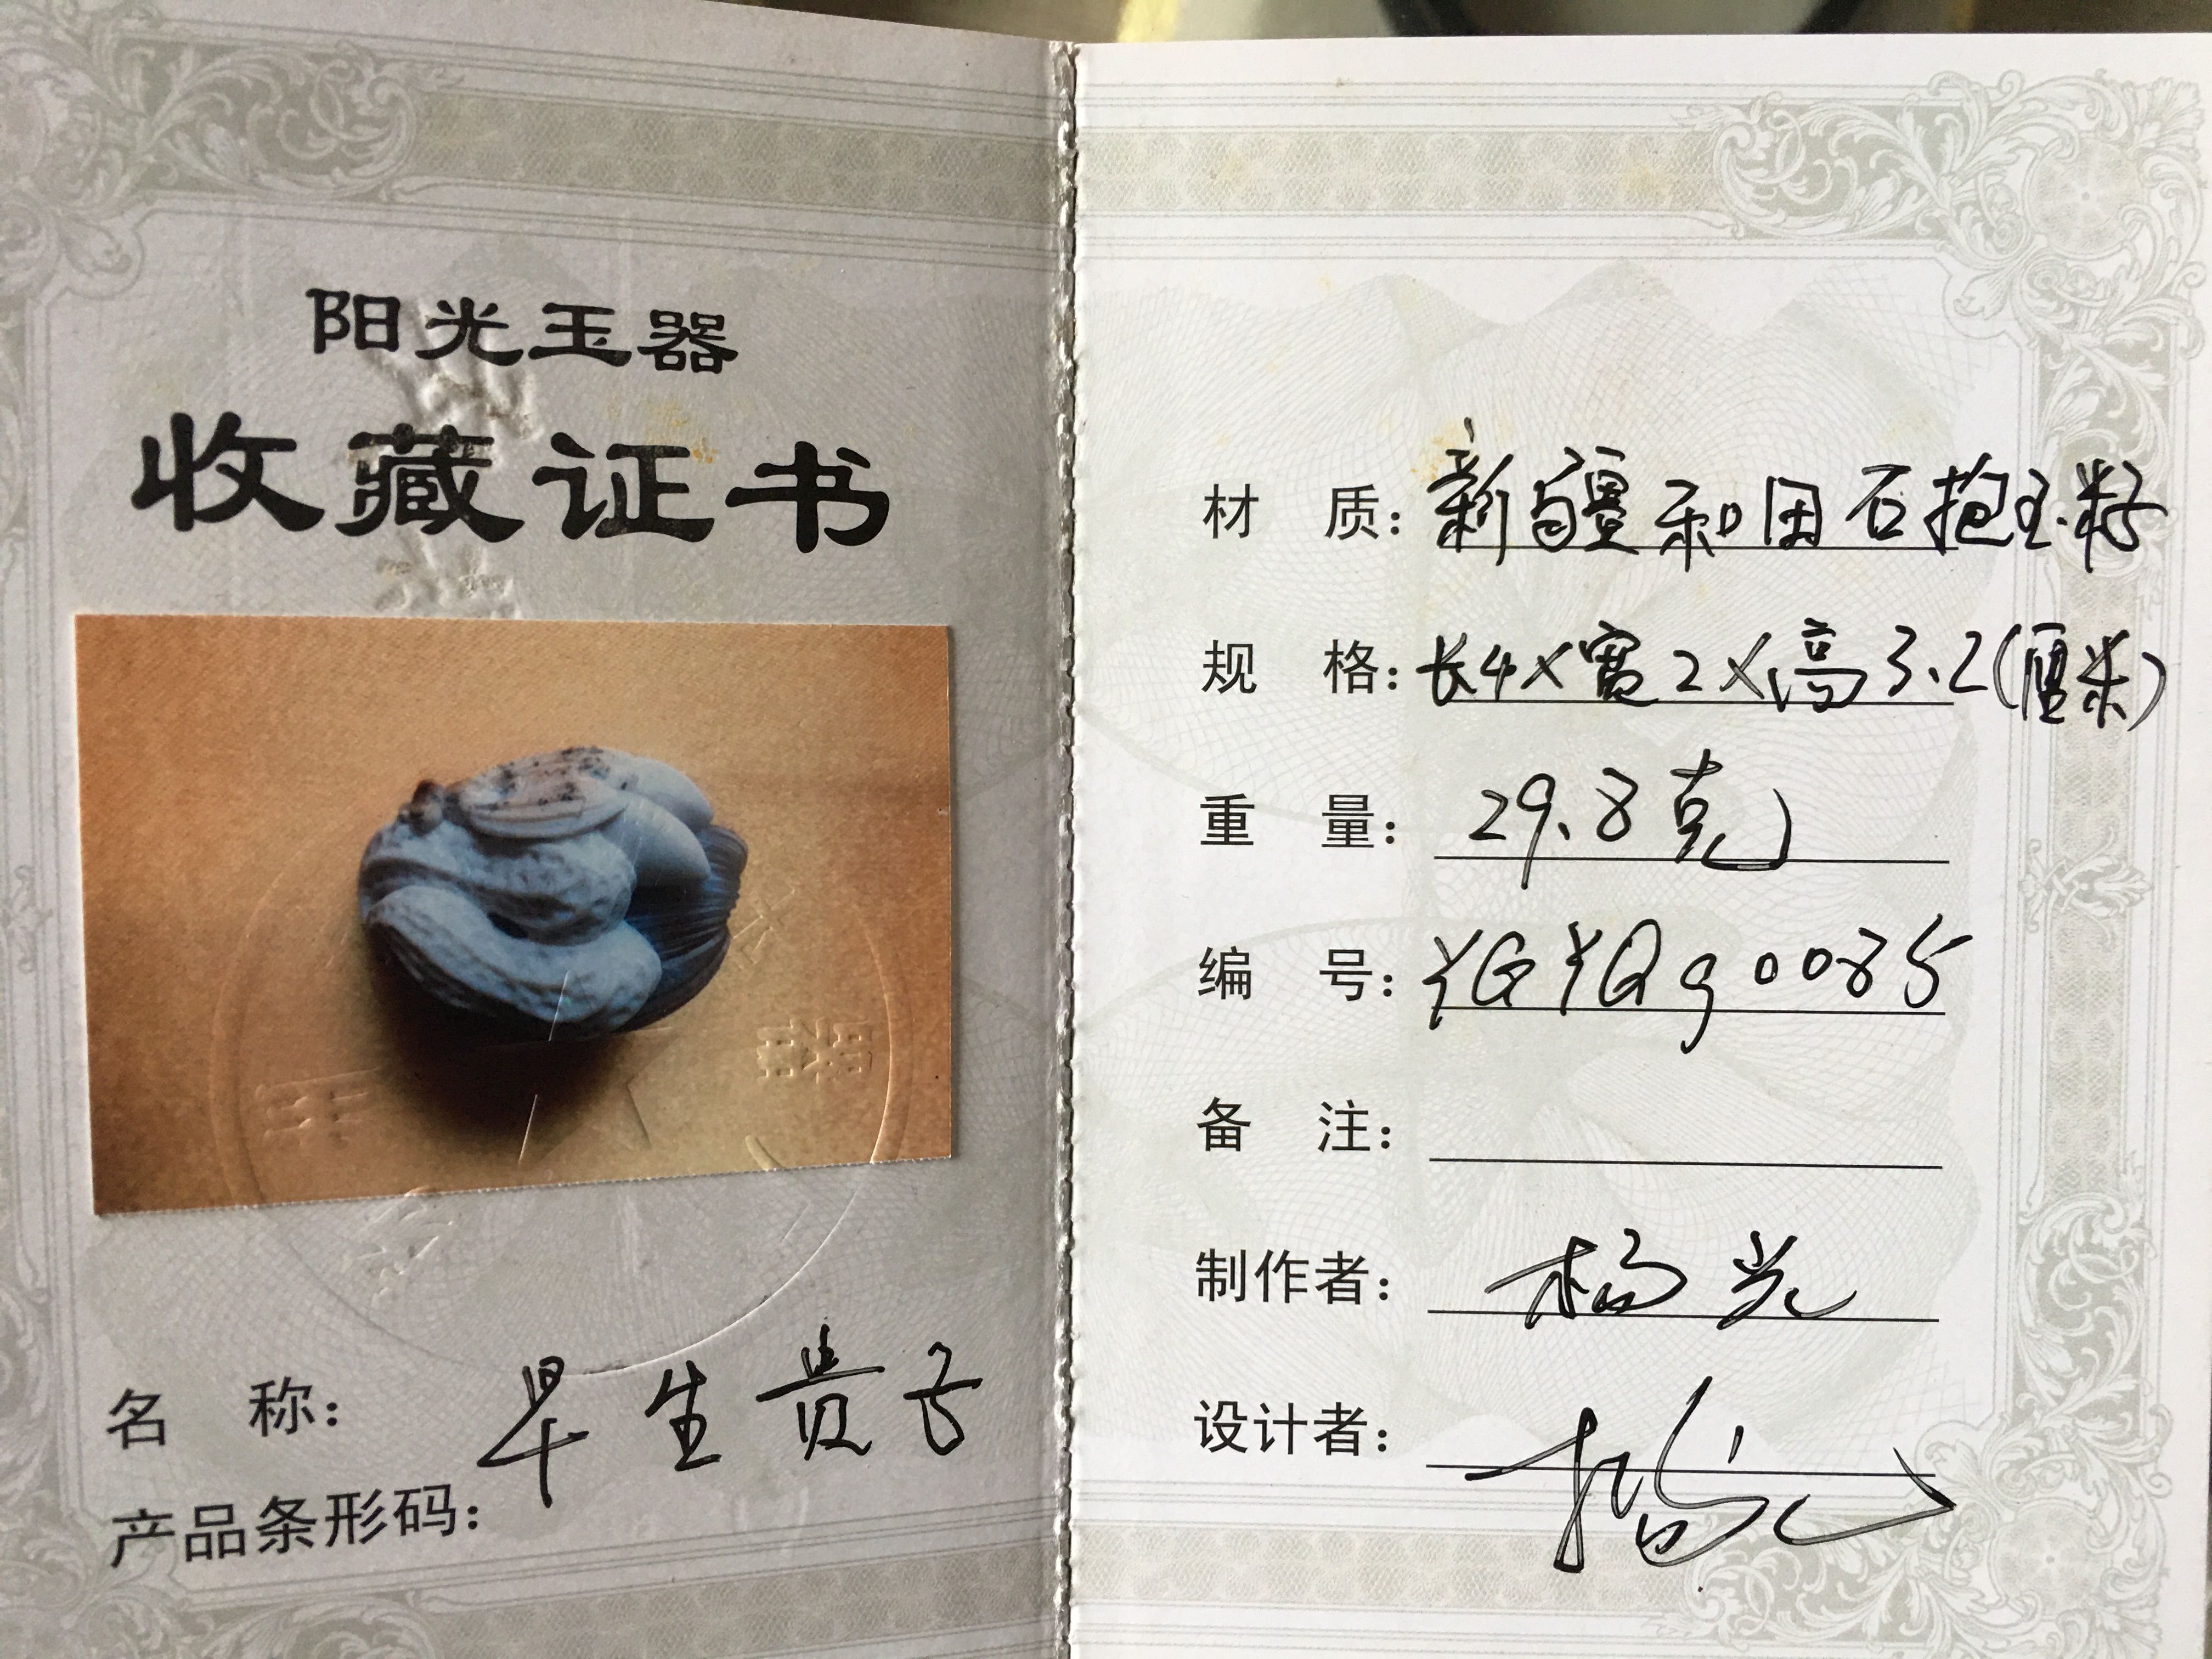 阳光玉器
收藏证书
名 称: 早生贵子
产品条形码:
材 质: 新疆和田石抱玉籽
规 格: 长4×宽2×高3.2(厘米)
重 量: 29.8克
编 号: YGYQg0085
备 注:
制作者: 杨光
设计者: 杨光